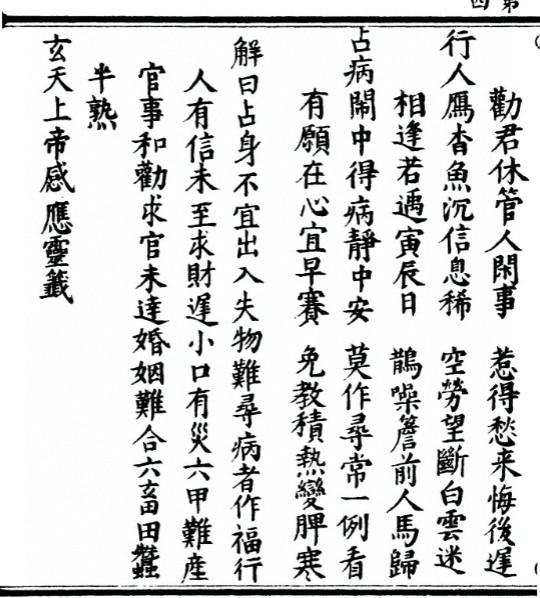 第四
勸君休管人閑事 惹得愁来悔後遲
行人鴈杳魚沉信息稀 空勞望斷白雲迷
相逢若遇寅辰日 鵲噪簷前人馬歸
占病鬧中得病靜中安 莫作尋常一例看
有願在心宜早賽 免教積熱變脾寒
解曰占身不宜出入失物難尋病者作福行
人有信未至求財遲小口有災六甲難産
官事和勸求官未達婚姻難合六畜田蠶
半熟
玄天上帝感應靈籤